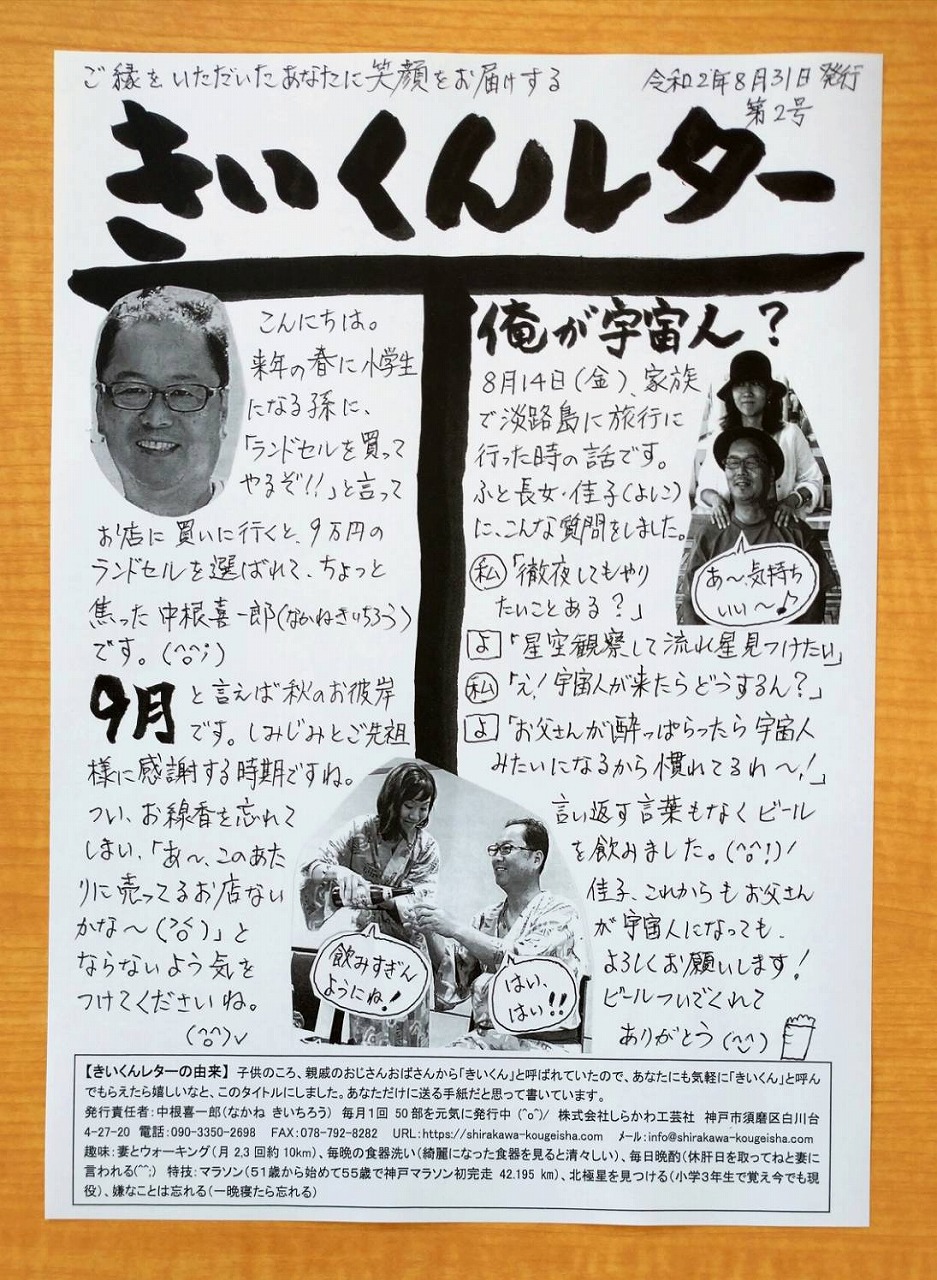 ご縁をいただいたあなたに笑顔をお届けする
令和2年8月31日発行
第2号
きいくんレター
こんにちは。
来年の春に小学生
になる孫に、
「ランドセルを買って
やるぞ!!」と言って
お店に買いに行くと、9万円の
ランドセルを選ばれて、ちょっと
焦った中根喜一郎(なかねきいちろう)
です。(^o^;)
9月と言えば秋のお彼岸
です。しみじみとご先祖
様に感謝する時期ですね。
つい、お線香を忘れて
しまい、「あ〜、このあた
りに売ってるお店ない
かな〜(>o<)」と
ならないよう気を
つけてくださいね。
(^o^)v
俺が宇宙人?
8月14日(金)、家族
で淡路島に旅行に
行った時の話です。
ふと長女・佳子(よしこ)
に、こんな質問をしました。
私「徹夜してもやり
たいことある?」
よ「星空観察して流れ星見つけたい」
私「え!宇宙人が来たらどうするん?」
よ「お父さんが酔っぱらったら宇宙人
みたいになるから慣れてるわ〜!」
言い返す言葉もなくビール
を飲みました。(^o^!)/
佳子、これからもお父さん
が宇宙人になっても、
よろしくお願いします!
ビールついでくれて
ありがとう(^-^)
あ〜、気持ち
いい〜♪
飲みすぎん
ようにね!
はい、
はい!!
【きいくんレターの由来】子供のころ、親戚のおじさんおばさんから「きいくん」と呼ばれていたので、あなたにも気軽に「きいくん」と呼ん
でもらえたら嬉しいなと、このタイトルにしました。あなただけに送る手紙だと思って書いています。
発行責任者:中根喜一郎(なかね きいちろう) 毎月1回 50部を元気に発行中(^o^)/ 株式会社しらかわ工芸社 神戸市須磨区白川台
4-27-20 電話:090-3350-2698 FAX:078-792-8282 URL:https://shirakawa-kougeisha.com メール:info@shirakawa-kougeisha.com
趣味:妻とウォーキング(月2,3回約10km)、毎晩の食器洗い(綺麗になった食器を見ると清々しい)、毎日晩酌(休肝日を取ってねと妻に
言われる(^^;) 特技:マラソン(51歳から始めて55歳で神戸マラソン初完走 42.195 km)、北極星を見つける(小学3年生で覚え今でも現
役)、嫌なことは忘れる(一晩寝たら忘れる)